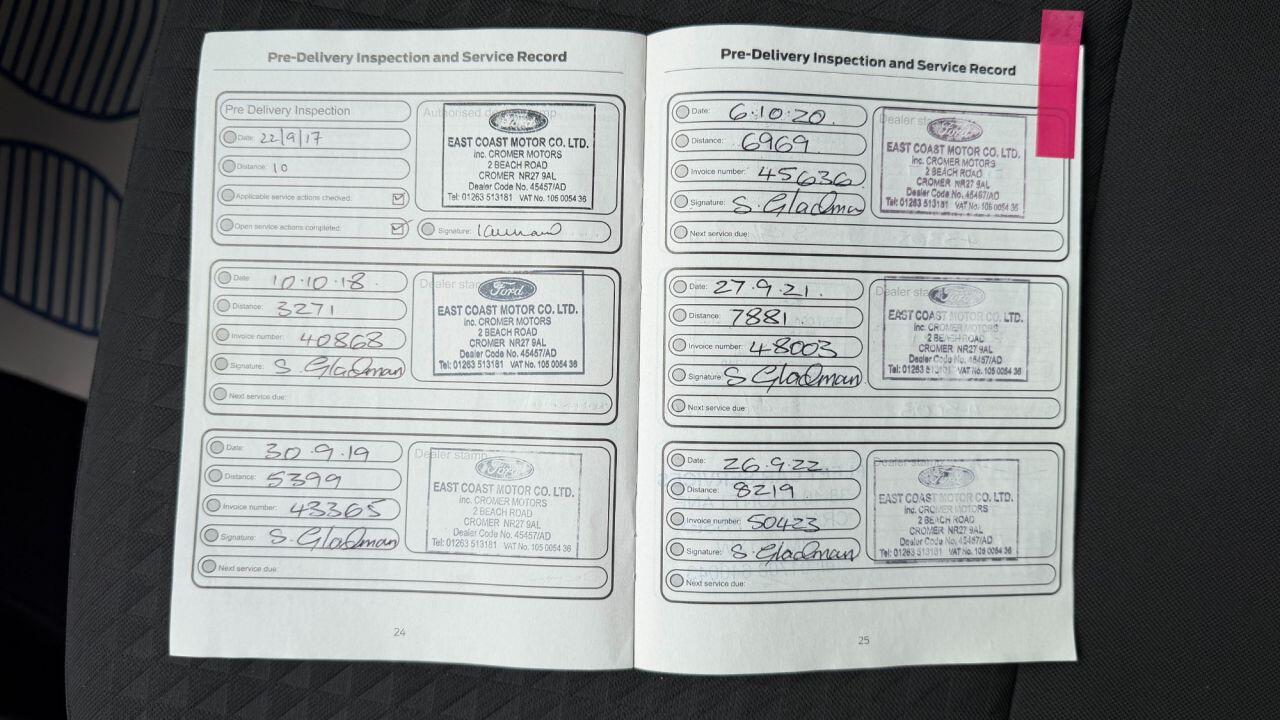 Pre-Delivery Inspection and Service Record
Pre Delivery Inspection
Date: 22/9/17
Distance: 10
Applicable service actions checked:
Open service actions completed:
Authorised dealer stamp
Ford
EAST COAST MOTOR CO. LTD.
inc. CROMER MOTORS
2 BEACH ROAD
CROMER NR27 9AL
Dealer Code No. 45457/AD
Tel: 01263 513181 VAT No. 105 0054 36
Signature:
Date: 10.10.18.
Distance: 3271
Invoice number: 40868
Signature: S. Gladman
Next service due:
Dealer stamp
Ford
EAST COAST MOTOR CO. LTD.
inc. CROMER MOTORS
2 BEACH ROAD
CROMER NR27 9AL
Dealer Code No. 45457/AD
Tel: 01263 513181 VAT No. 105 0054 36
Date: 30.9.19
Distance: 5399
Invoice number: 43365
Signature: S. Gladman
Next service due:
Dealer stamp
Ford
EAST COAST MOTOR CO. LTD.
inc. CROMER MOTORS
2 BEACH ROAD
CROMER NR27 9AL
Dealer Code No. 45457/AD
Tel: 01263 513181 VAT No. 105 0054 36
24
Pre-Delivery Inspection and Service Record
Date: 6.10.20.
Distance: 6969
Invoice number: 45636
Signature: S. Gladman
Next service due:
Dealer stamp
Ford
EAST COAST MOTOR CO. LTD.
inc. CROMER MOTORS
2 BEACH ROAD
CROMER NR27 9AL
Dealer Code No. 45457/AD
Tel: 01263 513181 VAT No. 105 0054 36
Date: 27.9.21.
Distance: 7881
Invoice number: 48003
Signature: S Gladman
Next service due:
Dealer stamp
Ford
EAST COAST MOTOR CO. LTD.
inc. CROMER MOTORS
2 BEACH ROAD
CROMER NR27 9AL
Dealer Code No. 45457/AD
Tel: 01263 513181 VAT No. 105 0054 36
Date: 26.9.22
Distance: 8219
Invoice number: 50423
Signature: S. Gladman
Next service due:
Dealer stamp
EAST COAST MOTOR CO. LTD.
inc. CROMER MOTORS
2 BEACH ROAD
CROMER NR27 9AL
Dealer Code No. 45457/AD
Tel: 01263 513181 VAT No. 105 0054 36
25